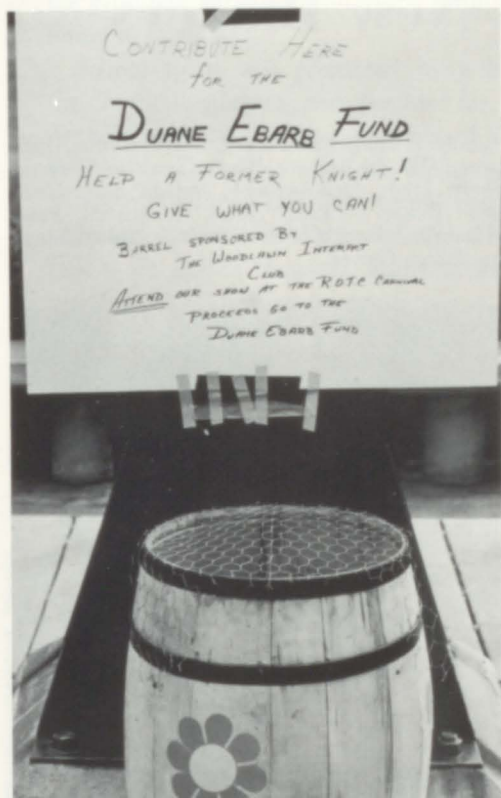 CONTRIBUTE HERE
for THE
DUANE EBARB FUND
HELP A FORMER KNIGHT!
GIVE WHAT YOU CAN!
BARREL SPONSORED BY
THE WOODLAWN INTERACT
CLUB
ATTEND OUR SHOW AT THE ROTC CARNIVAL
PROCEEDS GO TO THE
DUANE EBARB FUND